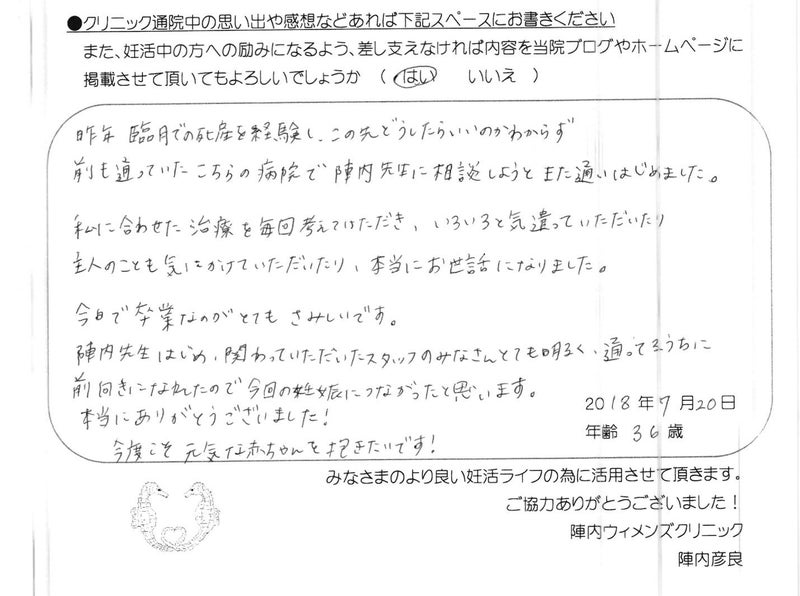 ●クリニック通院中の思い出や感想などあれば下記スペースにお書きください
また、妊活中の方への励みになるよう、差し支えなければ内容を当院ブログやホームページに
掲載させて頂いてもよろしいでしょうか （ はい　いいえ ）
昨年 臨月での死産を経験し、この先どうしたらいいのかわからず
前も通っていたこちらの病院で 陣内先生に相談しようと また通いはじめました。
私に合わせた治療を毎回考えていただき、いろいろと気遣っていただいたり
主人のことも気にかけていただいたり、本当にお世話になりました。
今日で卒業なのがとても さみしいです。
陣内先生はじめ、関わっていただいたスタッフのみなさんとても明るく、通ってるうちに
前向きになれたので今回の妊娠につながったと思います。
本当にありがとうございました！
2018年7月20日
今度こそ 元気な赤ちゃんを抱きたいです！
年齢 36歳
みなさまのより良い妊活ライフの為に活用させて頂きます。
ご協力ありがとうございました！
陣内ウィメンズクリニック
陣内彦良